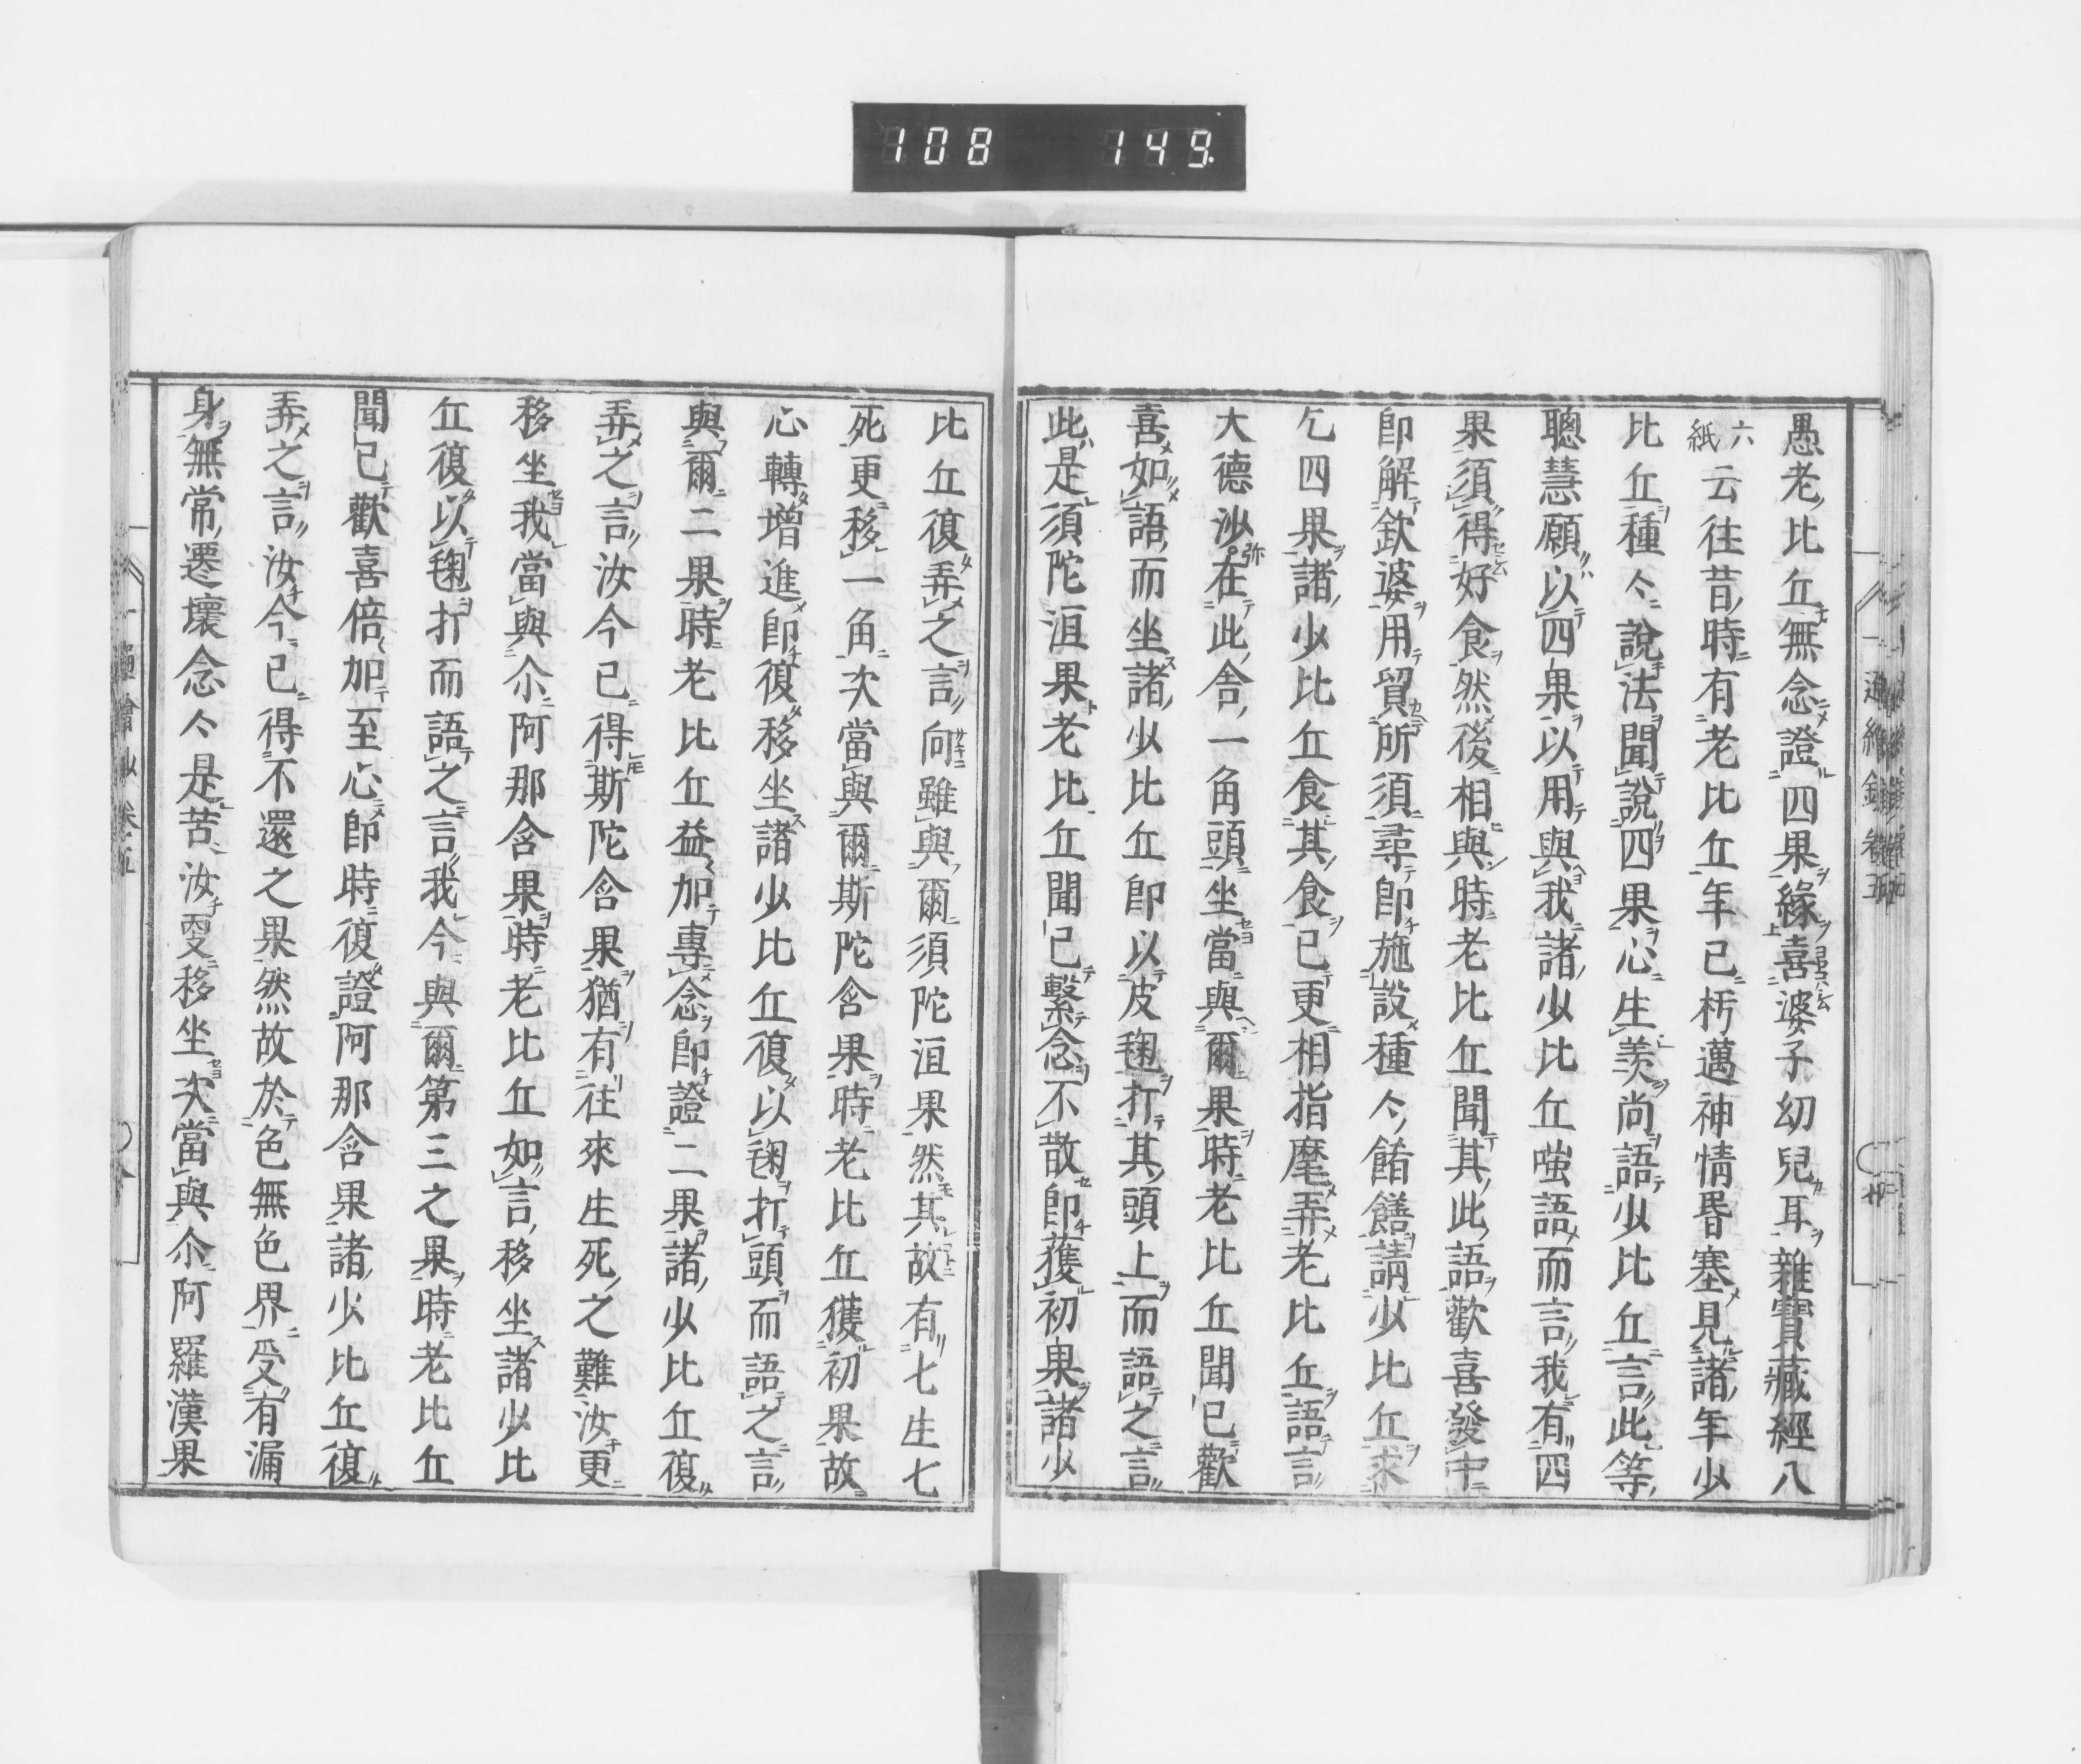 108 149
愚老比丘無念證四果緣喜婆子幼兒耳雜寶藏經八
六紙云往昔時有老比丘年已朽邁神情昬塞見諸年少
比丘種々說法聞說四果心生羨尚語少比丘言此等
聰慧願以四果以用與我諸少比丘嗤語而言我有四
果須得好食然後相與時老比丘聞其此語歡喜發中
卽解欽婆用貿所須尋卽施設種々餚饍請少比丘求
乞四果諸少比丘食其食已更相指麾弄老比丘語言
大德沙弥在此舍一角頭坐當與爾果時老比丘聞已歡
喜如語而坐諸少比丘卽以皮毱打其頭上而語之言
此是須陀洹果老比丘聞已繫念不散卽獲初果諸少
比丘復弄之言向雖與爾須陀洹果然其故有七生七
死更移一角次當與爾斯陀含果時老比丘獲初果故
心轉增進卽復移坐諸少比丘復以毱打頭而語之言
與爾二果時老比丘益加專念卽證二果諸少比丘復
弄之言汝今已得斯陀含果猶有往來生死之難汝更
移坐我當與尒阿那含果時老比丘如言移坐諸少比
丘復以毱打而語之言我今與爾第三之果時老比丘
聞已歡喜倍加至心卽時復證阿那含果諸少比丘復
弄之言汝今已得不還之果然故於色無色界受有漏
身無常遷壞念々是苦汝更移坐次當與尒阿羅漢果